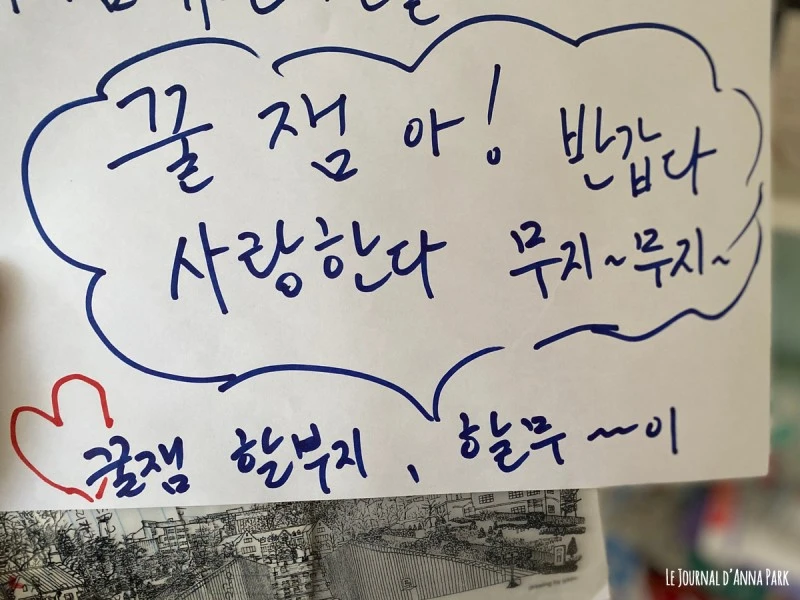 꿀 잼 아! 반갑다
사랑한다 무지~무지~
꿀잼 할부지, 할무~~이
LE JOURNAL D'ANNA PARK